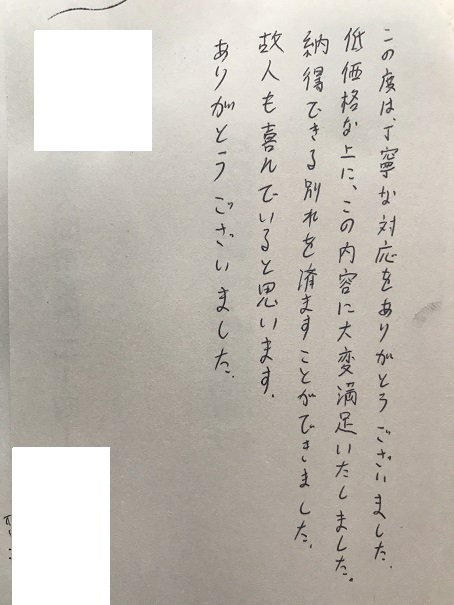 この度は、丁寧な対応をありがとうございました。
低価格な上に、この内容に大変満足いたしました。
納得できる別れを済ますことができました。
故人も喜んでいると思います。
ありがとうございました。